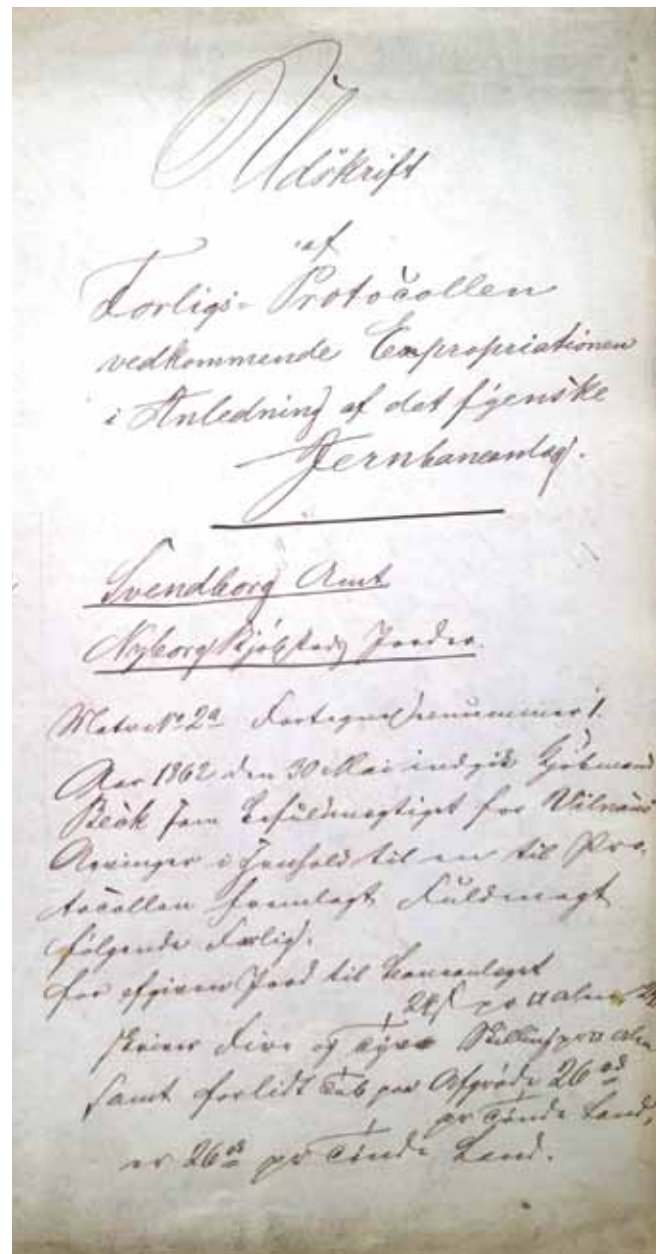 Udskrift
af
Forligs-Protocollen
vedkommende Expropriationen
i Anledning af det fyenske
Jernbaneanlæg.
Svendborg Amt
Nyborg Kjøbstads Jorder.
Matr. No 2a Fortegnelsenummer 1.
Aar 1862 den 30 Mai indgik Kjøbmand
Beck som befuldmægtiget for
Arvinger i Henhold til en til Pro-
tocollen fremlagt Fuldmagt
følgende Forlig.
for afgiven Jord til Baneanlæget
24 ß pr □ Alen
skriver Fire og Tyve Skilling pr □ Alen
samt for lidt Tab paa Afgrøde 26 rd
pr Tønde Land,
er 26 rd pr Tønde Land.